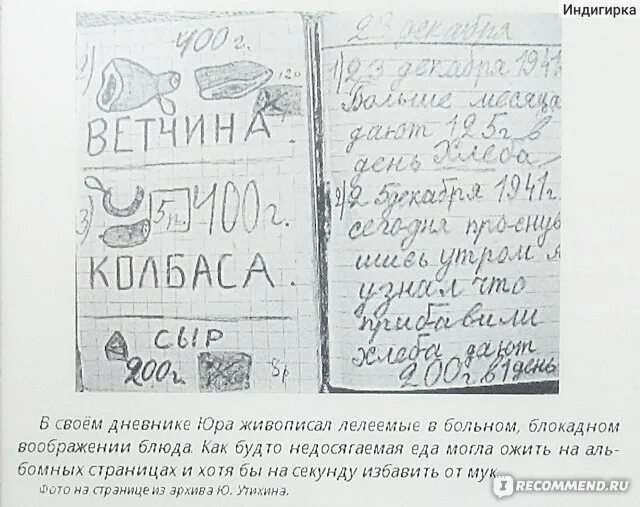 Индигирка
400 г.
2)
120
ВЕТЧИНА.
3)
5 р.
400 г.
КОЛБАСА.
СЫР
200 г.
8 р
23 декабря
1) 23 декабря 1941
Больше месяца
дают 125 г в
день Хлеба
2) 25 декабря 1941 г.
сегодня проснув
шись утром я
узнал что
прибавили
хлеба дают
200 г в 1 день
В своём дневнике Юра живописал лелеемые в больном, блокадном
воображении блюда. Как будто недосягаемая еда могла ожить на аль-
бомных страницах и хотя бы на секунду избавить от мук...
Фото на странице из архива Ю. Утихина.
I RECOMMEND.RU